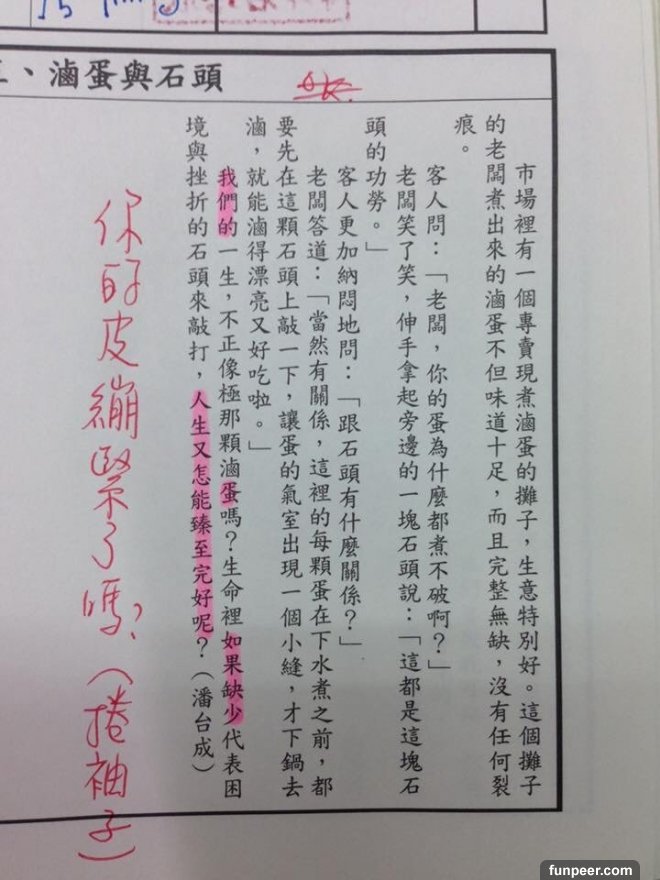 三、滷蛋與石頭
市場裡有一個專賣現煮滷蛋的攤子，生意特別好。這個攤子
的老闆煮出來的滷蛋不但味道十足，而且完整無缺，沒有任何裂
痕。
客人問：「老闆，你的蛋為什麼都煮不破啊？」
老闆笑了笑，伸手拿起旁邊的一塊石頭說：「這都是這塊石
頭的功勞。」
客人更加納悶地問：「跟石頭有什麼關係？」
老闆答道：「當然有關係，這裡的每顆蛋在下水煮之前，都
要先在這顆石頭上敲一下，讓蛋的氣室出現一個小縫，才下鍋去
滷，就能滷得漂亮又好吃啦。」
我們的一生，不正像極那顆滷蛋嗎？生命裡如果缺少代表困
境與挫折的石頭來敲打，人生又怎能臻至完好呢？（潘台成）
你的皮繃緊了嗎？（捲袖子）
funpeer.com